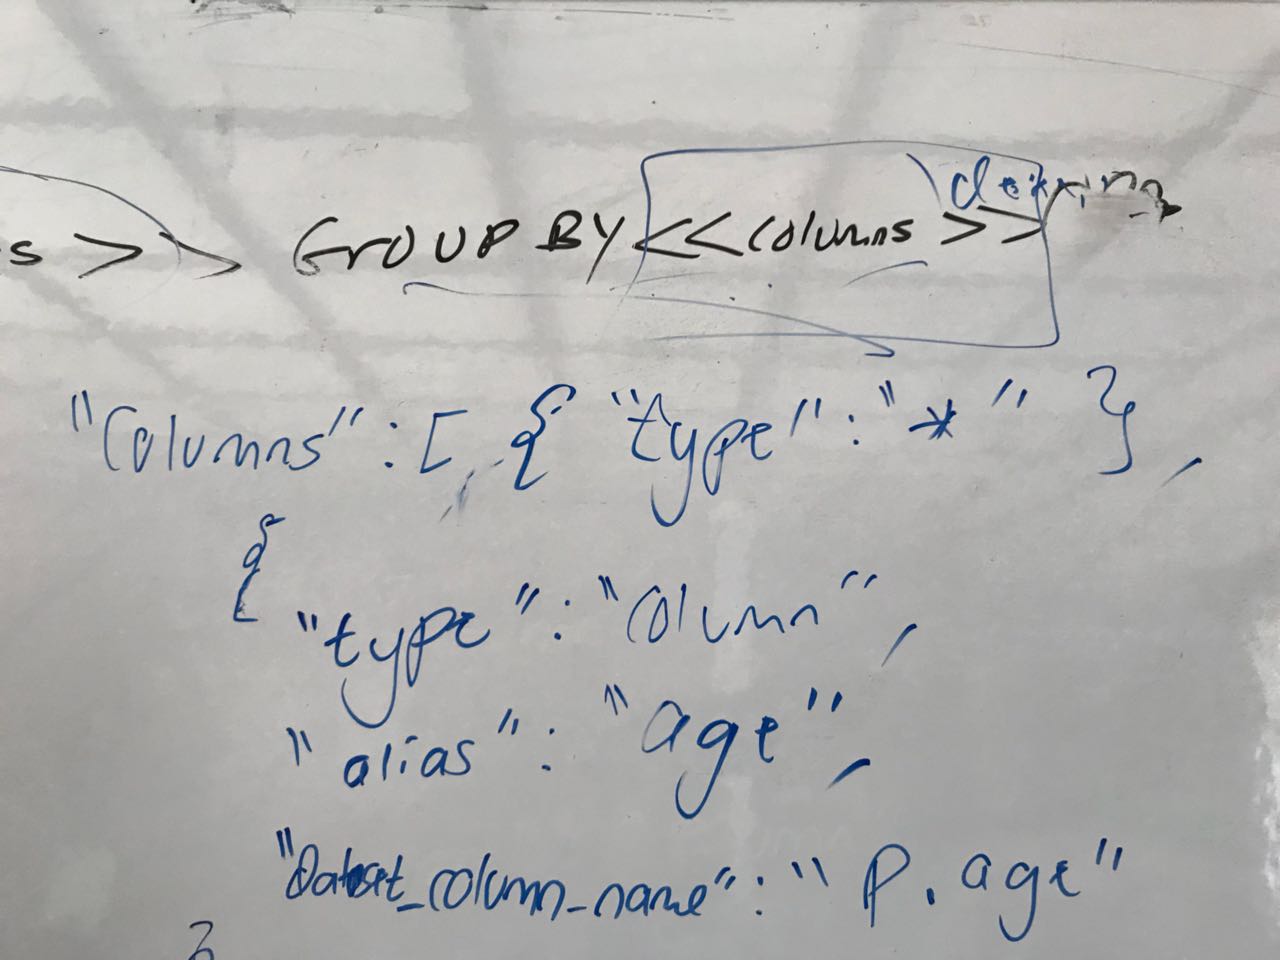 s >> GROUP BY <<columns >>
"Columns":[ { "type":"*" },
{
"type":"column",
"alias":"age",
"Dataset_column_name":"p.age"
}